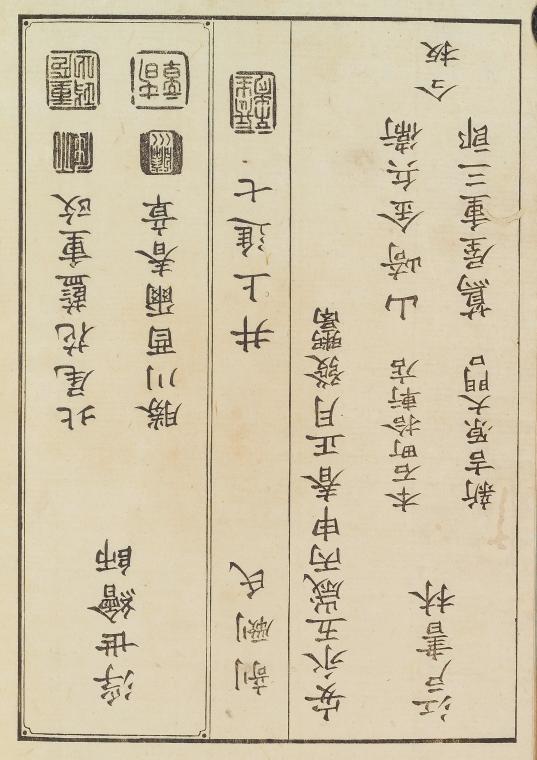 浮世繪師
北尾花藍重政
勝川酉爾春章
剞劂氏
井上進七
安永五歳丙申春正月發
江戸書林
本石町拾軒店
山崎金兵衛
新吉原大門口
蔦屋重三郎
合板